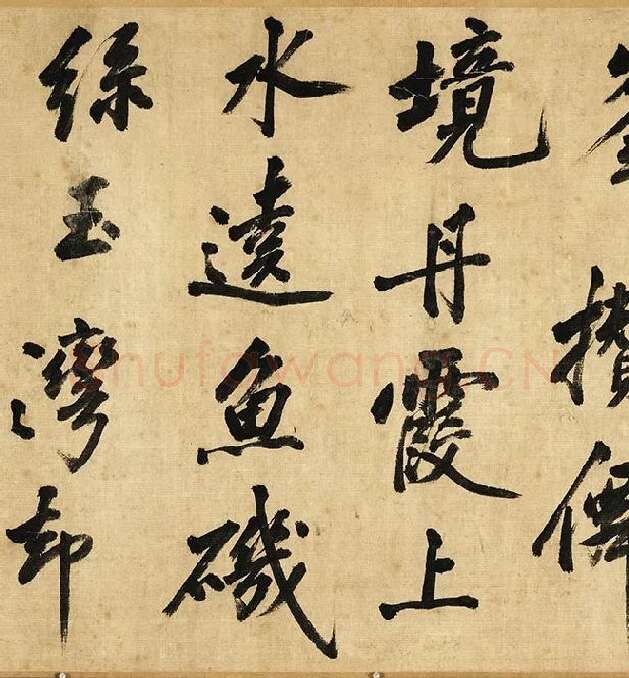 攢僊
境丹霞上
水遶魚磯
綠玉灣却
shufawang.CN